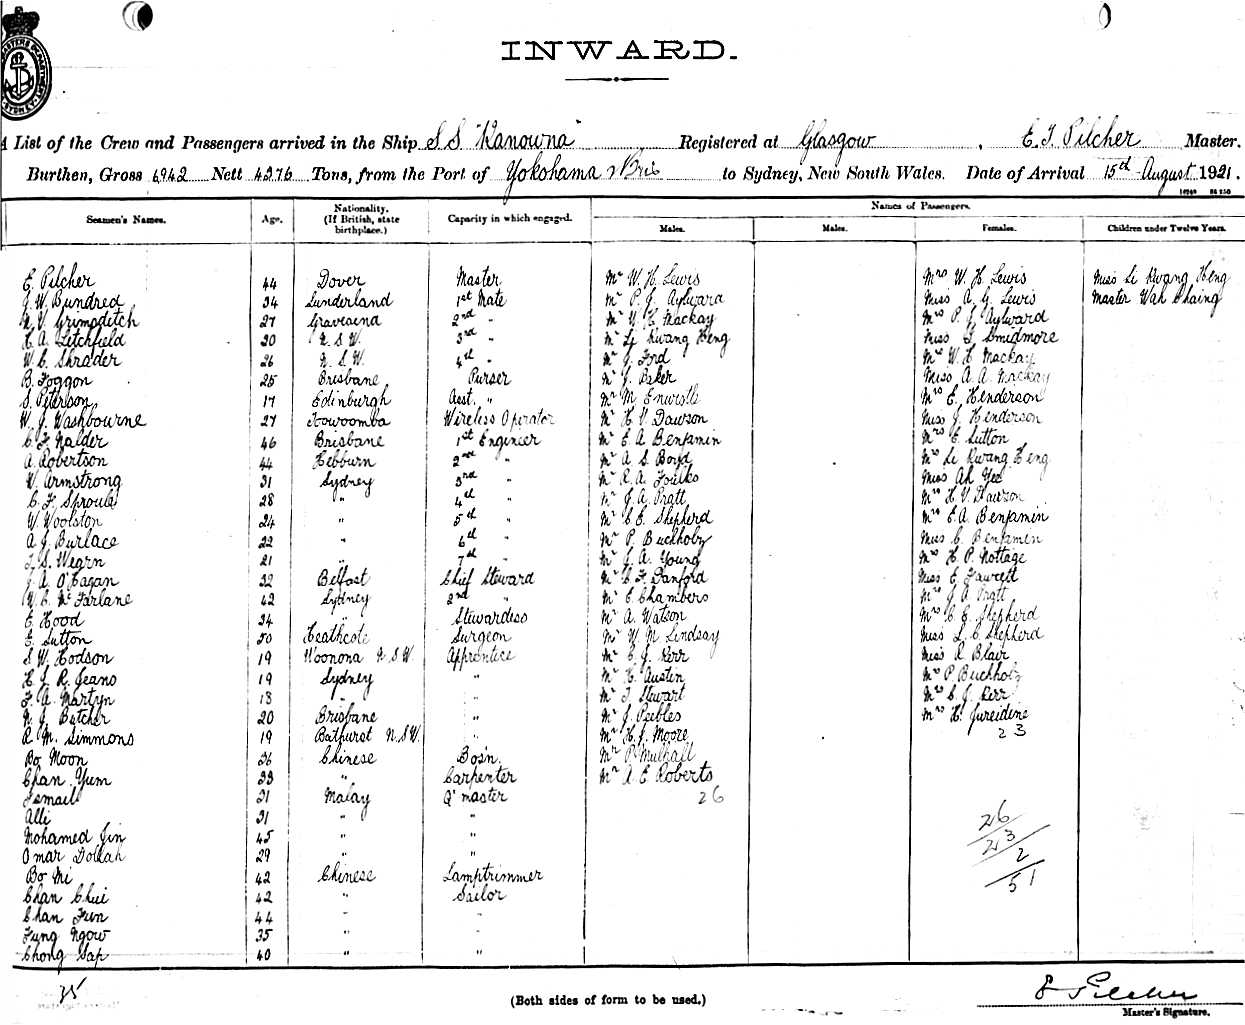 INWARD.
A List of the Crew and Passengers arrived in the Ship S S "Kanowna" Registered at Glasgow, E. T. Pilcher Master.
Burthen, Gross 6942 Nett 4376 Tons, from the Port of Yokohama & Bris to Sydney, New South Wales. Date of Arrival 15th August 1921.
Seamen's Names. Age. Nationality. (If British, state birthplace.) Capacity in which engaged. Names of Passengers.
Males. Males. Females. Children under Twelve Years.
E. Pilcher 44 Dover Master Mr W. H. Lewis Mrs W. H. Lewis Miss Li Kwang Heng
J. W. Bundred 34 Sunderland 1st Mate Mr P. J. Aylward Miss A. G. Lewis Master Wah Chaing
N. V. Grimsditch 27 2nd " Mr W. H. Mackay Mrs P. J. Aylward
H. A. Letchfield 30 N. S. W. 3rd " Mr Li Kwang Heng Miss T. Smidmore
W. C. Shrader 26 N. S. W. 4th " Mr J. Ford Mrs W. H. Mackay
B. Foggon 25 Brisbane Purser Mr J. Baker Miss A. A. Mackay
S. Peterson 17 Edinburgh Asst. " Mr M. Enwistle Mrs E. Henderson
W. J. Washbourne 27 Toowoomba Wireless Operator Mr H. V. Dawson Miss J. Henderson
C. F. Nalder 46 Brisbane 1st Engineer Mr E. A. Benjamin Mrs E. Sutton
A. Robertson 44 Hebburn 2nd " Mr A. S. Boyd Mrs Li Kwang Heng
W. Armstrong 31 Sydney 3rd " Mr R. A. Foulks Miss Ah Yee
C. F. Sproule 28 " 4th " Mr J. A. Pratt Mrs H. V. Dawson
W. Woolston 24 " 5th " Mr C. E. Shepherd Mrs E. A. Benjamin
A. J. Burlace 22 " 6th " Mr P. Buchholz Miss C. Benjamin
T. S. Wearn 21 " 7th " Mr G. A. Young Mrs H. P. Nottage
J. A. O'Hagan 32 Belfast Chief Steward Mr C. F. Danford Miss E. Fawcett
W. C. McFarlane 42 Sydney 2nd " Mr E. Chambers Mrs J. A. Pratt
E. Hood 34 " Stewardess Mr A. Watson Mrs C. E. Shepherd
E. Sutton 50 Heathcote Surgeon Mr W. M. Lindsay Miss L. C. Shepherd
S. W. Hodson 19 Woonona N. S. W. Apprentice Mr C. J. Kerr Miss R. Blair
H. J. R. Jeans 19 Sydney " Mr H. Austin Mrs P. Buchholz
F. A. Martyn 18 " " Mr T. Stewart Mrs C. J. Kerr
N. J. Butcher 20 Brisbane " Mr J. Peebles Mrs H. Jureidene
R. M. Simmons 19 Bathurst N. S. W. " Mr H. J. Moore 23
Bo Moon 36 Chinese Bos'n. Mr P. Mulhall
Chan Yum 33 " Carpenter Mr A. E. Roberts
Ismail 31 Malay Q' master 26
Alli 31 " "
Mohamed Jin 45 " "
Omar Dollah 29 " "
Bo Mi 42 Chinese Lamptrimmer
Chan Chui 42 " Sailor
Chan Fun 44 " "
Fung Ngow 35 " "
Chong Sap 40 " "
26
23
2
51
35
(Both sides of form to be used.)
E T Pilcher
Master's Signature.